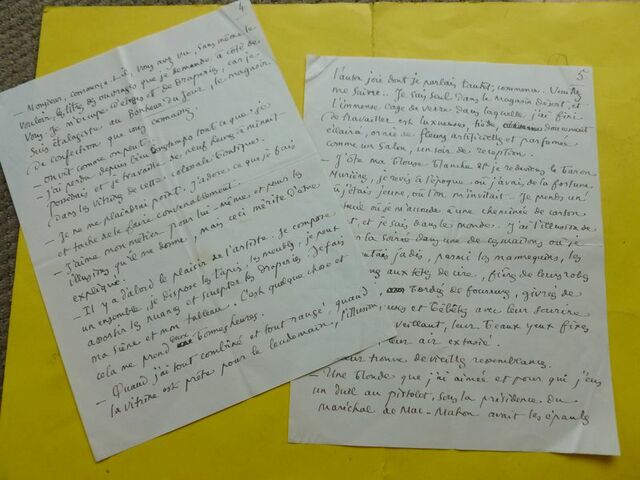 4
— Monsieur, commença-t-il, vous avez vu, sans même le
vouloir, les ouvrages que je demande, à côté de
vous. Je m'occupe d'étoffes et de draperies, car je
suis étalagiste au Bonheur du Jour, le magasin
de confection que vous connaissez.
— On vit comme on peut.
J'ai perdu depuis bien longtemps tout ce que je
possédais et je travaille de neuf heures à minuit
dans les vitrines de cette colossale boutique.
— Je ne me plaindrai point. J'adore ce que je fais
et tâche de le faire convenablement.
— J'aime mon métier pour lui-même et pour les
illusions qu'il me donne, mais ceci mérite d'être
expliqué.
— Il y a d'abord le plaisir de l'artiste. Je compose
un ensemble, je dispose les tapis, les meubles, je peux
assortir les nuances et sculpter les draperies. Je fais
ma scène et mon tableau. C'est quelque chose et
cela me prend deux bonnes heures.
— Quand j'ai tout combiné et tout rangé, quand
la vitrine est prête pour le lendemain, l'illusion,
5
l'autre joie dont je parlais tantôt, commence. Veuillez
me suivre. Je suis seul dans le magasin désert, et
l'immense cage de verre dans laquelle j'ai fini
de travailler est luxueuse, tiède, doucement
éclairée, ornée de fleurs artificielles et parfumée
comme un salon, un soir de réception.
— J'ôte ma blouse blanche et je redeviens le baron
Murière, je revis à l'époque où j'avais de la fortune
où j'étais jeune, où l'on m'invitait. Je prends un
où je m'accoude à une cheminée de carton
et je suis dans le monde. J'ai l'illusion de
la soirée dans une de ces maisons où je
jadis, parmi les mannequins, les
aux têtes de cire, fières de leurs robes
bordées de fourrures, givrées de
et bébêtes avec leur sourire
veillant, leurs beaux yeux fixes
leur air extasié.
leur trouve de vieilles ressemblances.
— Une blonde que j'ai aimée et pour qui j'eus
un duel au pistolet, sous la présidence du
maréchal de Mac-Mahon avait les épaules